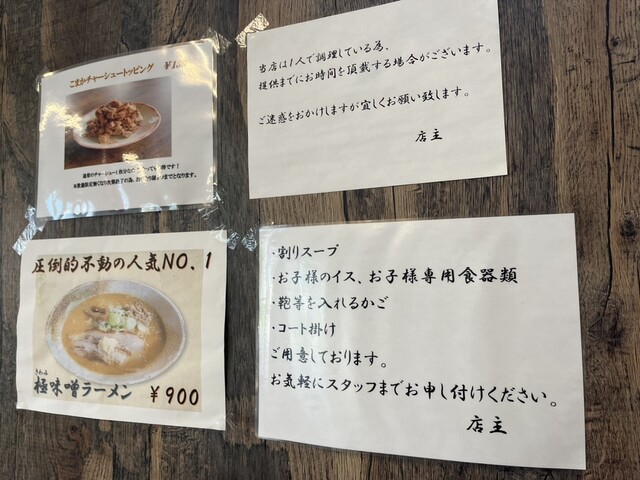 こまかチャーシュートッピング
当店は1人で調理している為、
提供までにお時間を頂戴する場合がございます。
ご迷惑をおかけしますが宜しくお願い致します。
店主
圧倒的不動の人気NO.1
きわみ
極味噌ラーメン ￥900
・割りスープ
・お子様のイス、お子様専用食器類
・鞄等を入れるかご
・コート掛け
ご用意しております。
お気軽にスタッフまでお申し付けください。
店主